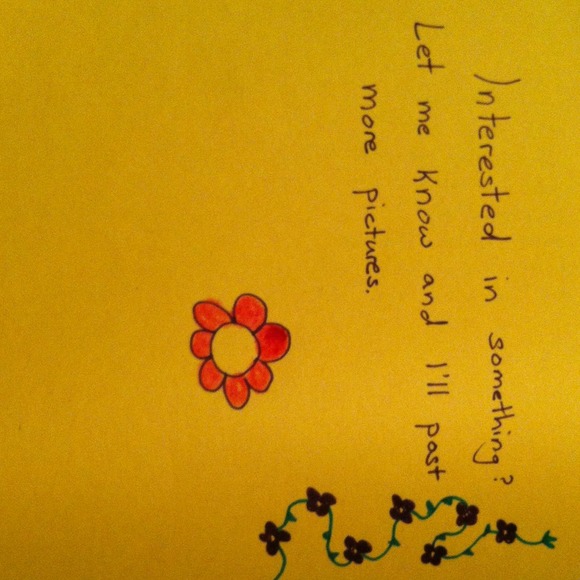 Interested in something?
Let me know and I'll past
more pictures.